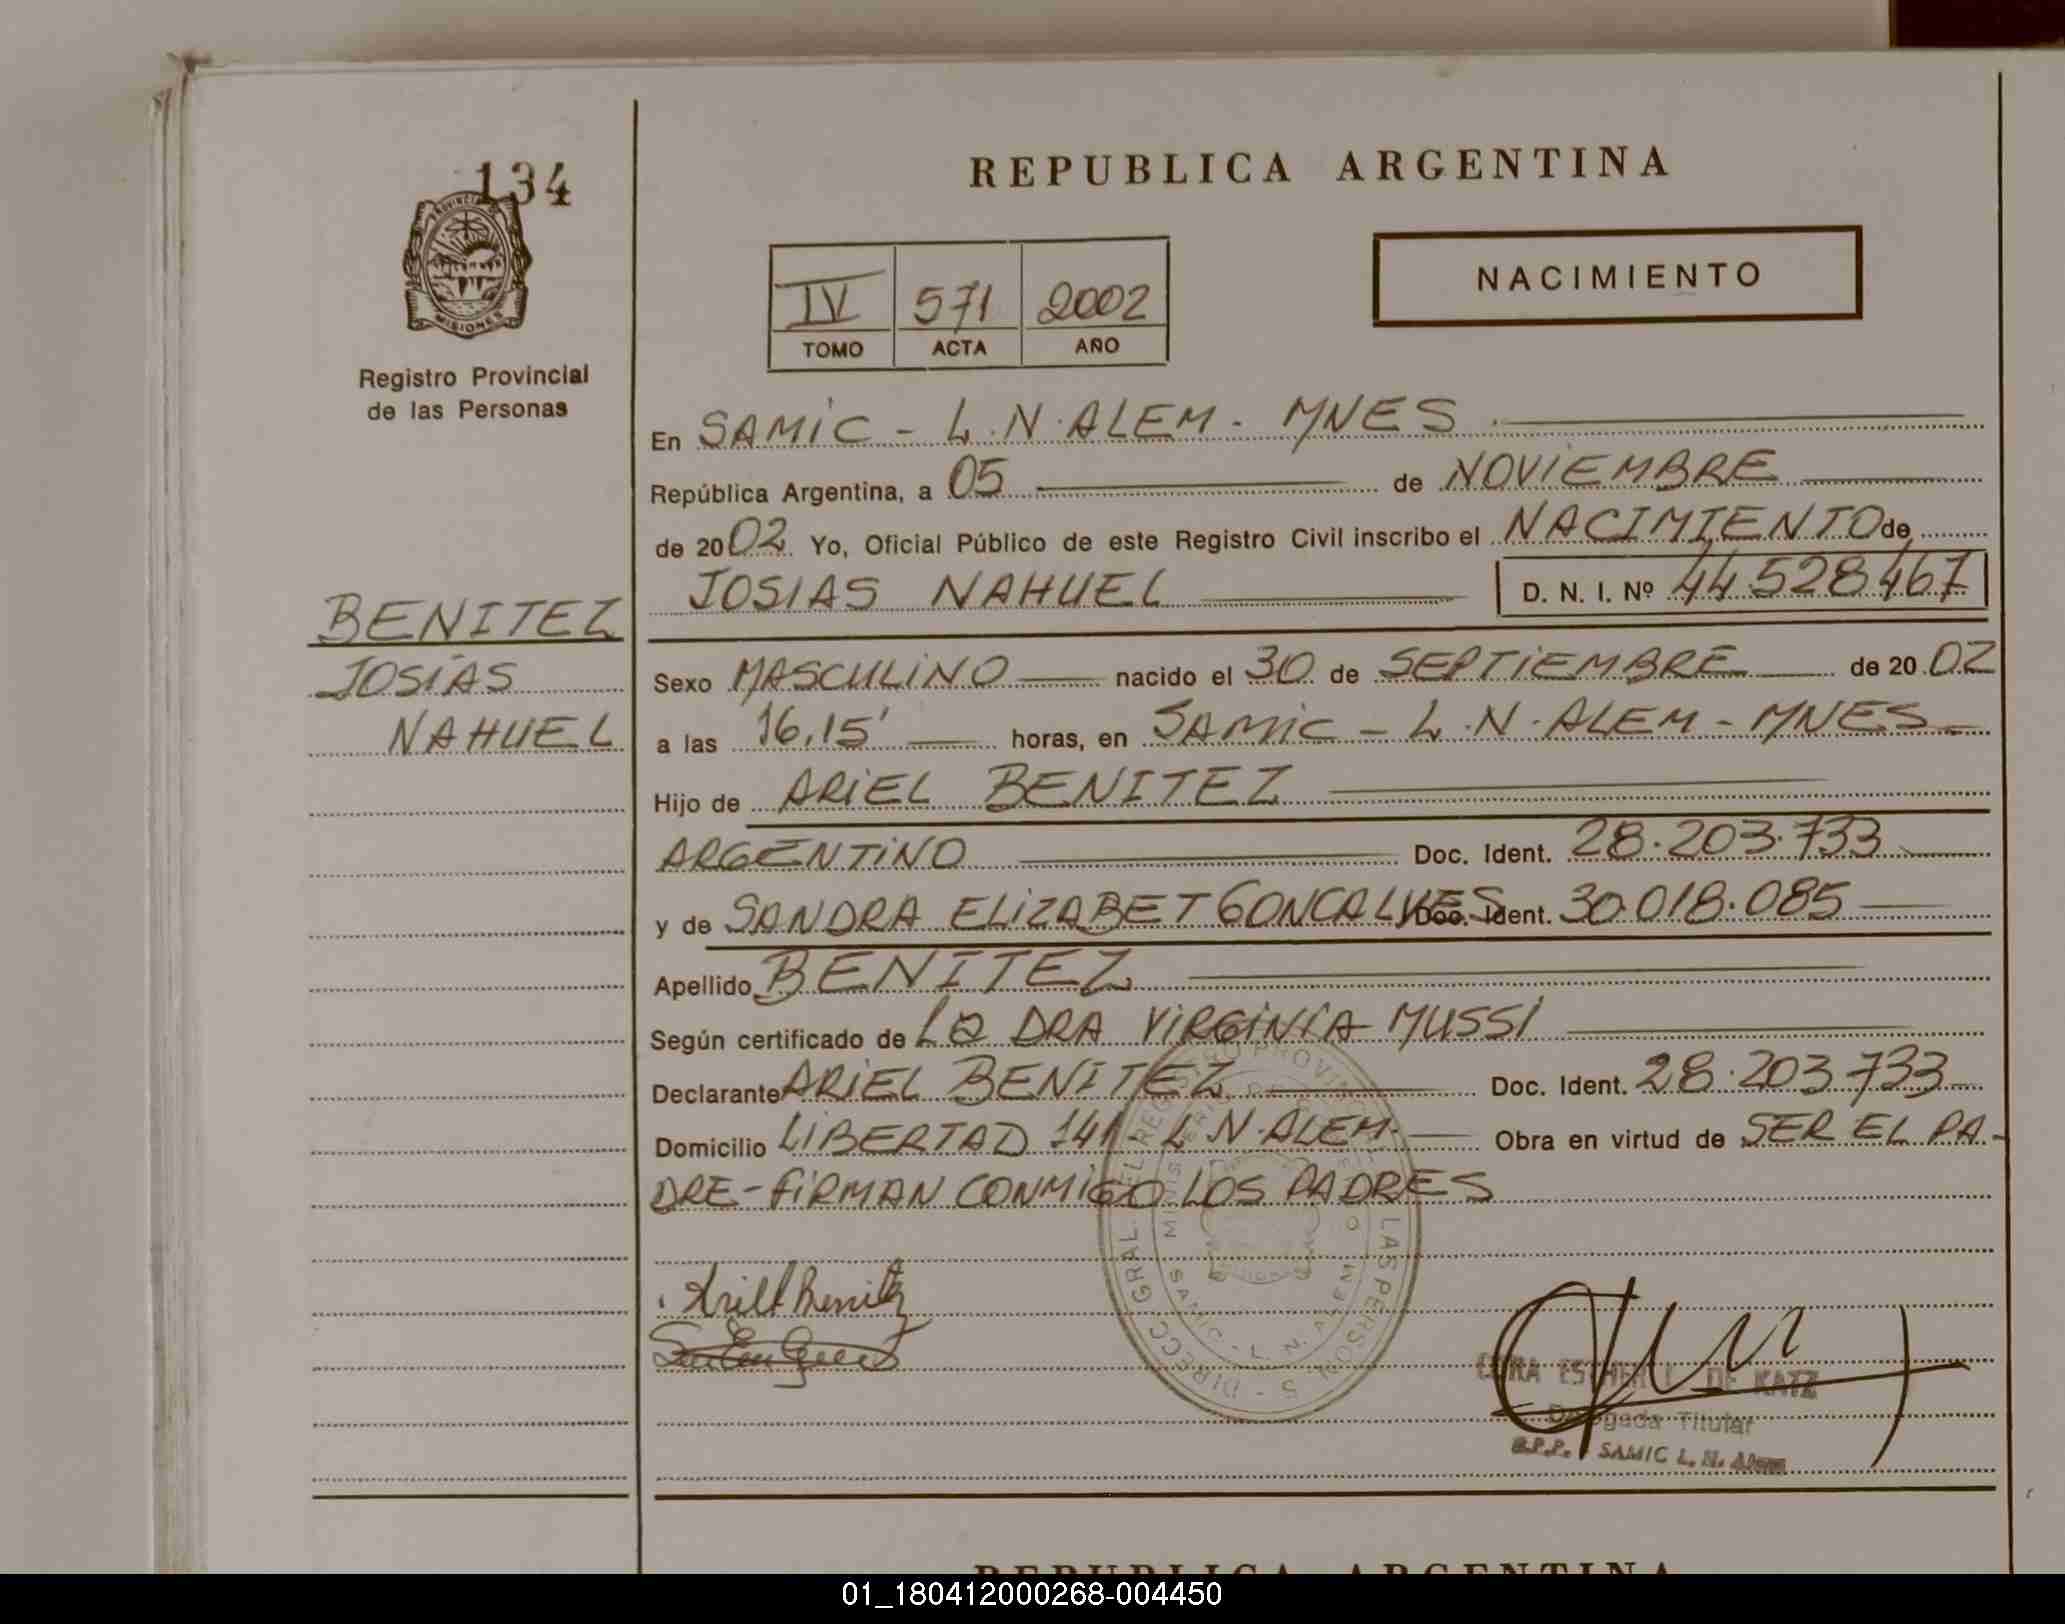 134
PROVINCIA
MISIONES
Registro Provincial
de las Personas
BENITEZ
JOSIAS
NAHUEL
REPUBLICA ARGENTINA
NACIMIENTO
IV 571 2002
TOMO ACTA AÑO
En SAMIC - L.N. ALEM - MNES
República Argentina, a 05 de NOVIEMBRE
de 2002 Yo, Oficial Público de este Registro Civil inscribo el NACIMIENTO de
JOSIAS NAHUEL D. N. I. Nº 44.528.467
Sexo MASCULINO nacido el 30 de SEPTIEMBRE de 20 02
a las 16,15' horas, en SAMIC - L.N. ALEM - MNES -
Hijo de ARIEL BENITEZ
ARGENTINO Doc. Ident. 28.203.733
y de SANDRA ELIZABET GONCALVES Doc. Ident. 30.018.085
Apellido BENITEZ
Según certificado de La DRA VIRGINIA MUSSI
Declarante ARIEL BENITEZ Doc. Ident. 28.203.733
Domicilio LIBERTAD 141 - L.N. ALEM. Obra en virtud de SER EL PA-
DRE - FIRMAN CONMIGO LOS PADRES
DE KATZ
Delegada Titular
SAMIC L. N. Alem
REPUBLICA ARGENTINA
01_180412000268-004450